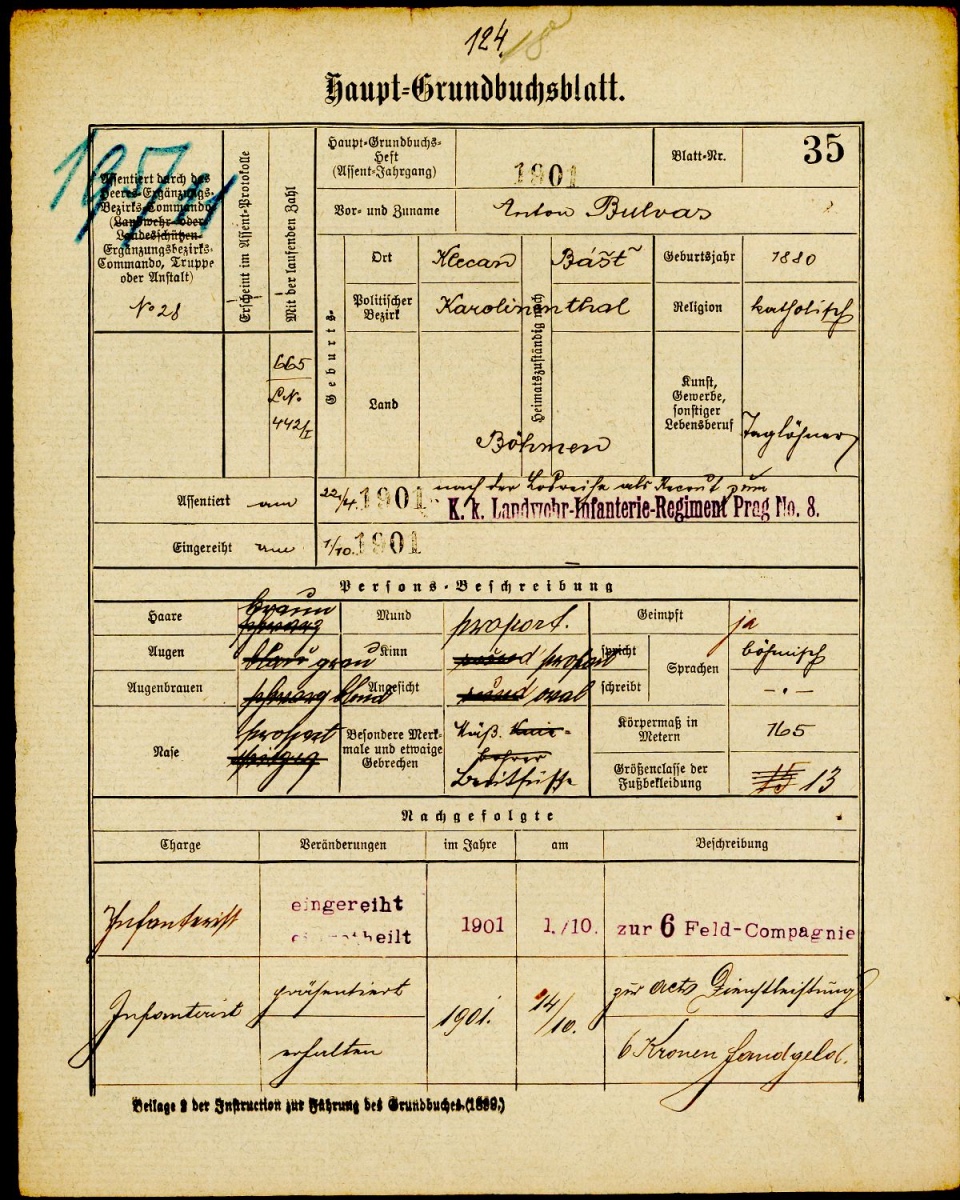 124
18
Haupt-Grundbuchsblatt.
Assentiert durch das
Heeres-Ergänzungs-
Bezirks-Commando
(Landwehr- oder
Landesschützen-
Ergänzungsbezirks-
Commando, Truppe
oder Anstalt)
No 28
Erscheint im Assent-Protokolle
Mit der laufenden Zahl
665
LNo
442/I
Haupt-Grundbuchs-
Heft
(Assent-Jahrgang)
1901
Blatt-Nr.
35
Vor- und Zuname
Anton Bulvas
Geburts-
Ort
Klecan
Heimatszuständig nach
Bášť
Geburtsjahr
1880
Politischer
Bezirk
Karolinenthal
Religion
katholisch
Land
Böhmen
Kunst,
Gewerbe,
sonstiger
Lebensberuf
Taglöhner
Assentiert am
22/4. 1901
nach der Losreihe als Recrut zum
K. k. Landwehr-Infanterie-Regiment Prag No. 8.
Eingereiht am
1/10. 1901
Persons-Beschreibung
Haare
braun
schwarz
Mund
proport.
Geimpft
ja
Augen
blau grau
Kinn
rund proport
spricht
Sprachen
böhmisch
Augenbrauen
schwarz blond
Angesicht
rund oval
schreibt
-.-
Nase
proport
spitzig
Besondere Merk-
male und etwaige
Gebrechen
Breitfüße
Körpermaß in
Metern
165
Größenclasse der
Fußbekleidung
15 13
Nachgefolgte
Charge
Veränderungen
im Jahre
am
Beschreibung
Infanterist
eingereiht
1901
1./10.
zur 6 Feld-Compagnie
Infanterist
präsentiert
1901.
14/10.
zur act. Dienstleistung
erhalten
6 Kronen Handgeld.
Beilage 2 der Instruction zur Führung des Grundbuches (1899.)